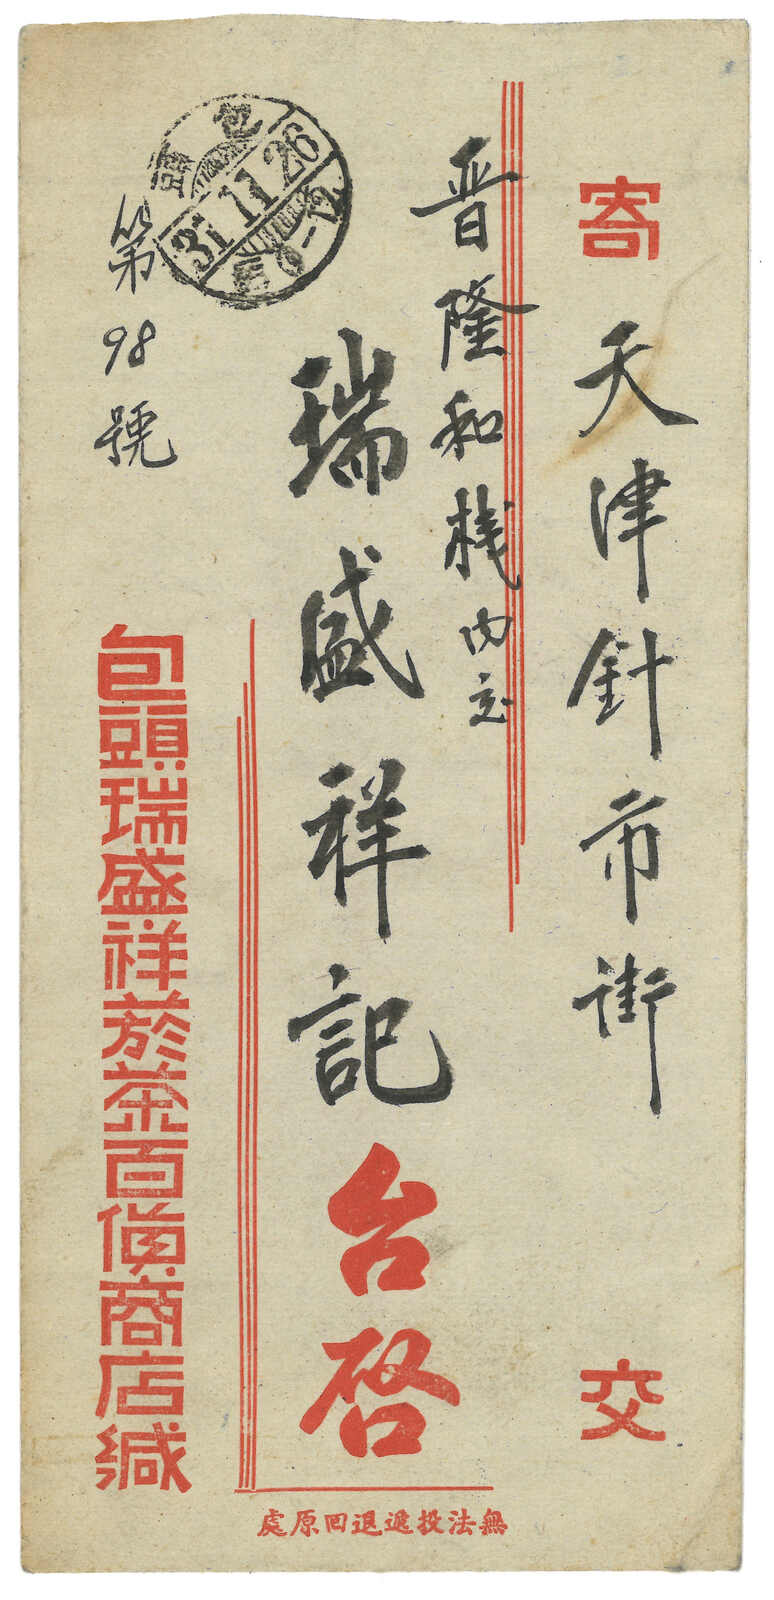 寄 天津針市街 交
晋隆和栈内交
瑞盛祥記 台啓
第98號
31.11.26
包頭瑞盛祥菸茶百貨商店緘
無法投遞退回原處